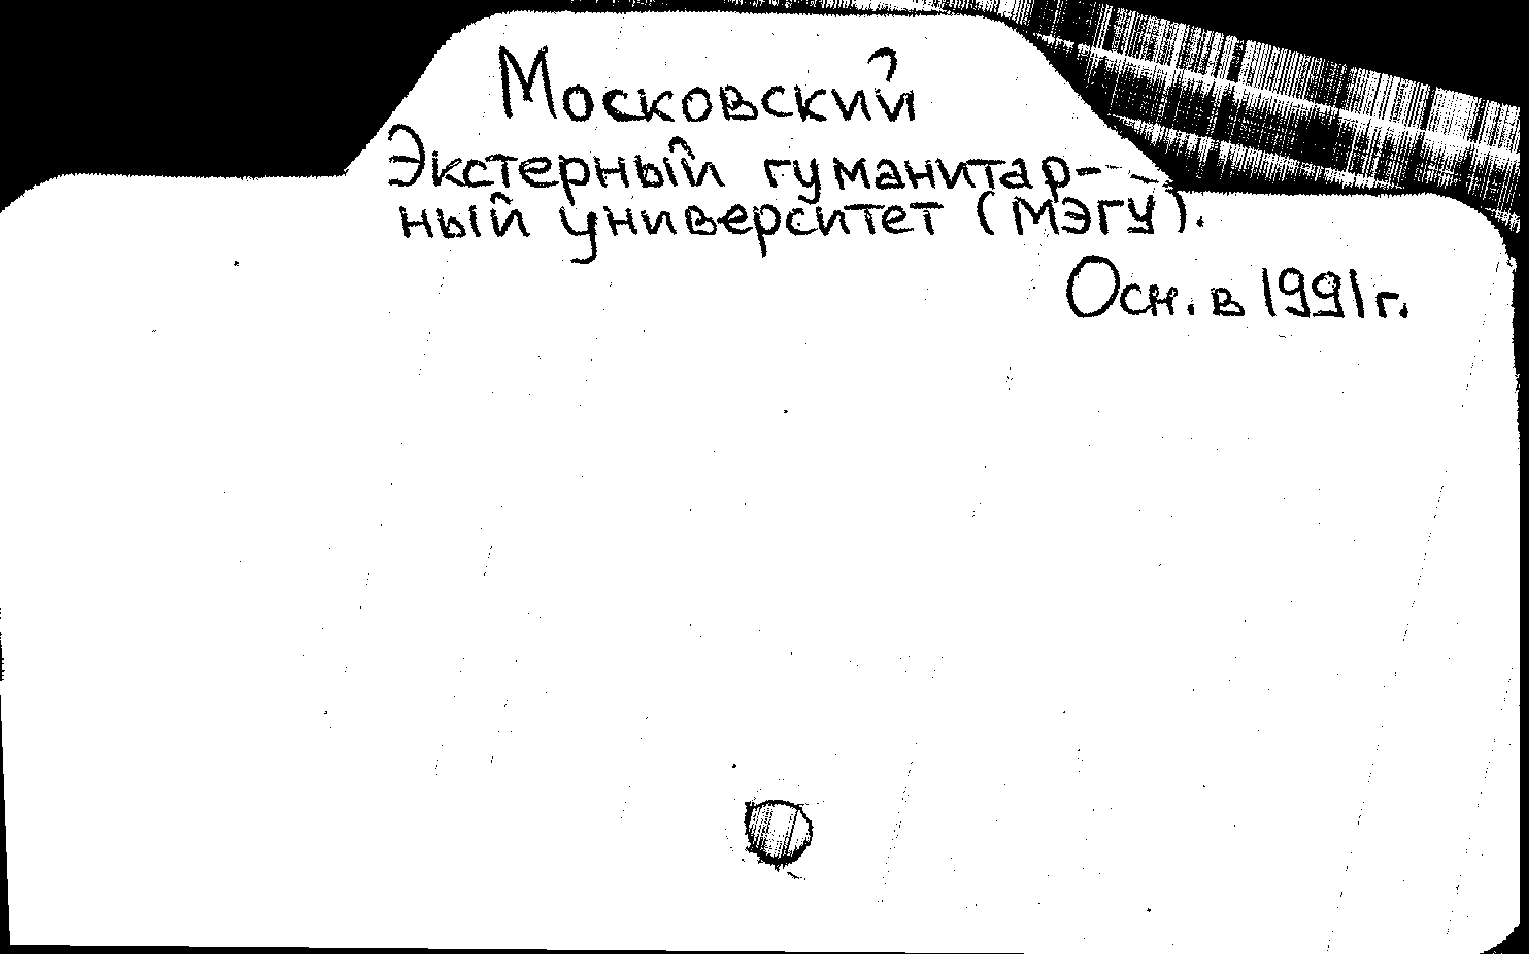 Московский
Экстерный гуманитар-
ный университет (МЭГУ).
Осн. в 1991 г.